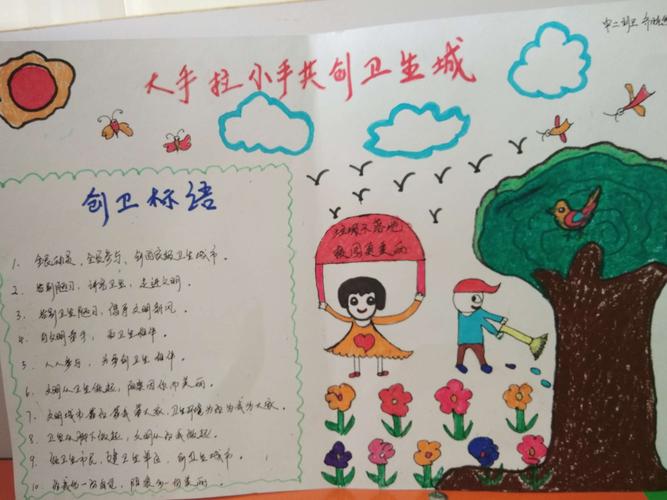 中二班
大手拉小手共创卫生城
创卫标语
垃圾不落地
校园更美丽
1. 全民动员，全民参与，创国家级卫生城市。
2. 告别陋习，讲究卫生，走进文明。
3. 告别卫生陋习，倡导文明新风。
4. 与文明牵手，和卫生相伴。
5. 人人参与，共享创卫生相伴。
6. 文明从卫生做起，因你而美丽。
7. 文明城市靠你靠我靠大家，卫生环境为你为我为大家。
8. 卫生从脚下做起，文明从你我做起。
9. 做卫生市民，建卫生单位，创卫生城市。
10. 一份美丽。